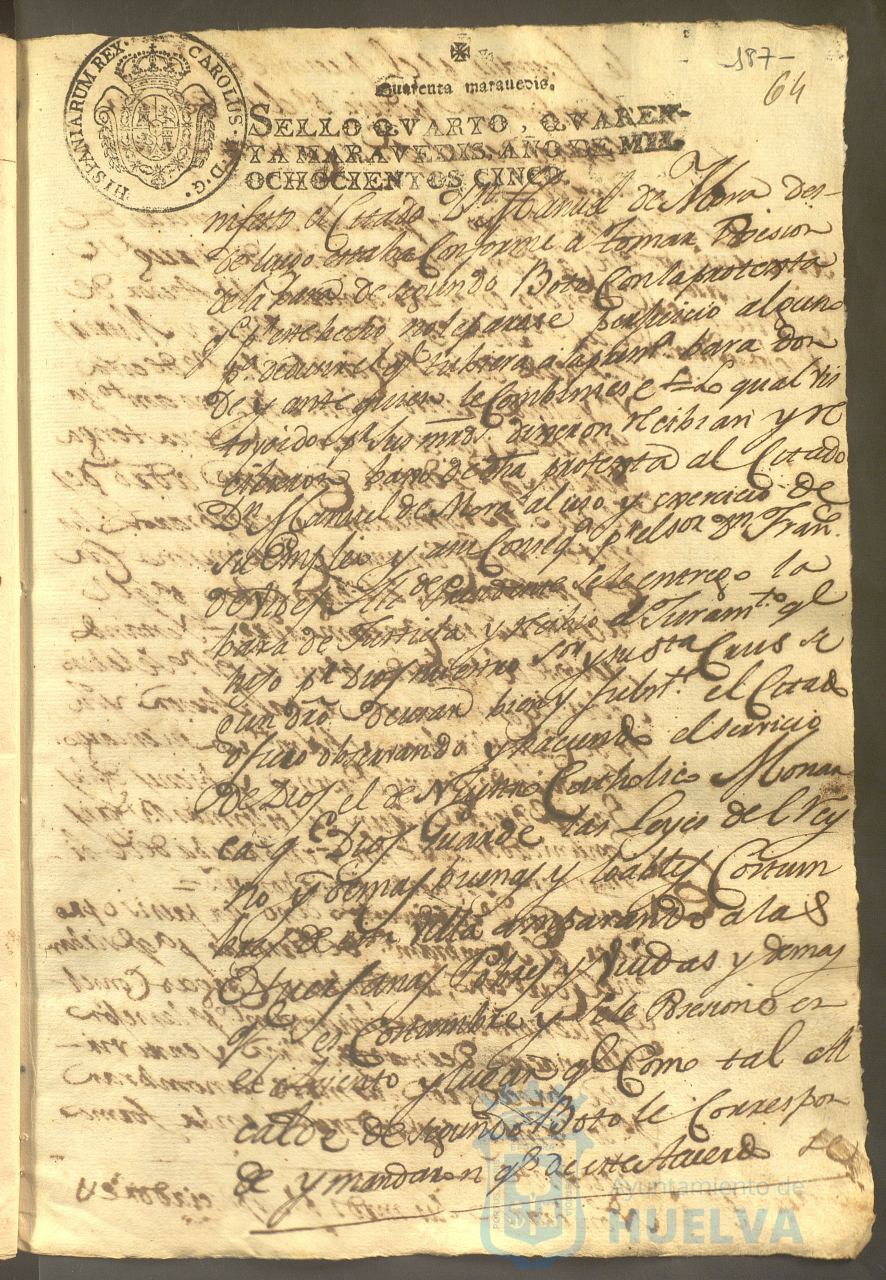 187-
64
HISPANIARUM REX. CAROLUS IV D.G.
Quarenta maravedis.
SELLO QVARTO, QVAREN-
TA MARAVEDIS, AÑO DE MIL
OCHOCIENTOS CINCO.
nifesto el Citado Dn Manuel de Mora des-
de luego estaba Conforme a tomar Posesion
de la bara de segundo Boto Con la protexta
qe pr este hecho no le parase perjuicio alguno
pa deducir el qe tubiera a la bara don
de y ante quien le Combiniese Lo qual vis
to y oido pr sus mrds dixeron recibian y re
cibieron bajo de dha protexta al Citado
Dn Manuel de Mora al uso y exercicio de
su Empleo y en Conseqa pr el sor Dn Franco
de Presidente se le entrego la
bara de Justicia y recibio el Juramto qe
hizo pr Dios nuestro Sor y una Crus se
gun dro de usar bien y fielmte el Citado
oficio observando y haciendo el servicio
de Dios el de Nuestro Catholico Monar
ca qe Dios Guarde las Leyes del Rey
no y demas buenas y loables Costum
bres de esta Villa amparando a las
Huerfanas Pobres y Viudas y demas
qe es Costumbre y se le Posesionó en
el asiento y lugar qe Como tal Al
calde de segundo Boto le Correspon
de y mandaron qe de este Acuerdo se
Ayuntamiento de
HUELVA